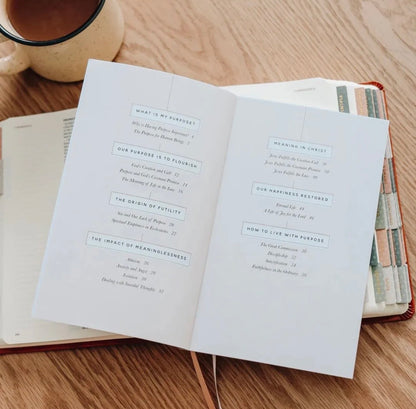 WHAT IS MY PURPOSE?
Why is Having Purpose Important? 4
The Purpose for Human Beings 5
OUR PURPOSE IS TO FLOURISH
God's Creation and Call 12
Purpose and God's Covenant Promise 14
The Meaning of Life in the Law 16
THE ORIGIN OF FUTILITY
Sin and Our Lack of Purpose 20
Spiritual Emptiness in Ecclesiastes 22
THE IMPACT OF MEANINGLESSNESS
Atheism 26
Anxiety and Angst 29
Isolation 30
Dealing with Suicidal Thoughts 32
MEANING IN CHRIST
Jesus Fulfills the Creation Call
Jesus Fulfills the Covenant Promise
Jesus Fulfills the Law
OUR HAPPINESS RESTORED
Eternal Life 44
A Life of Joy for the Lord 46
HOW TO LIVE WITH PURPOSE
The Great Commission
Discipleship 52
Sanctification 54
Faithfulness in the Ordinary 56